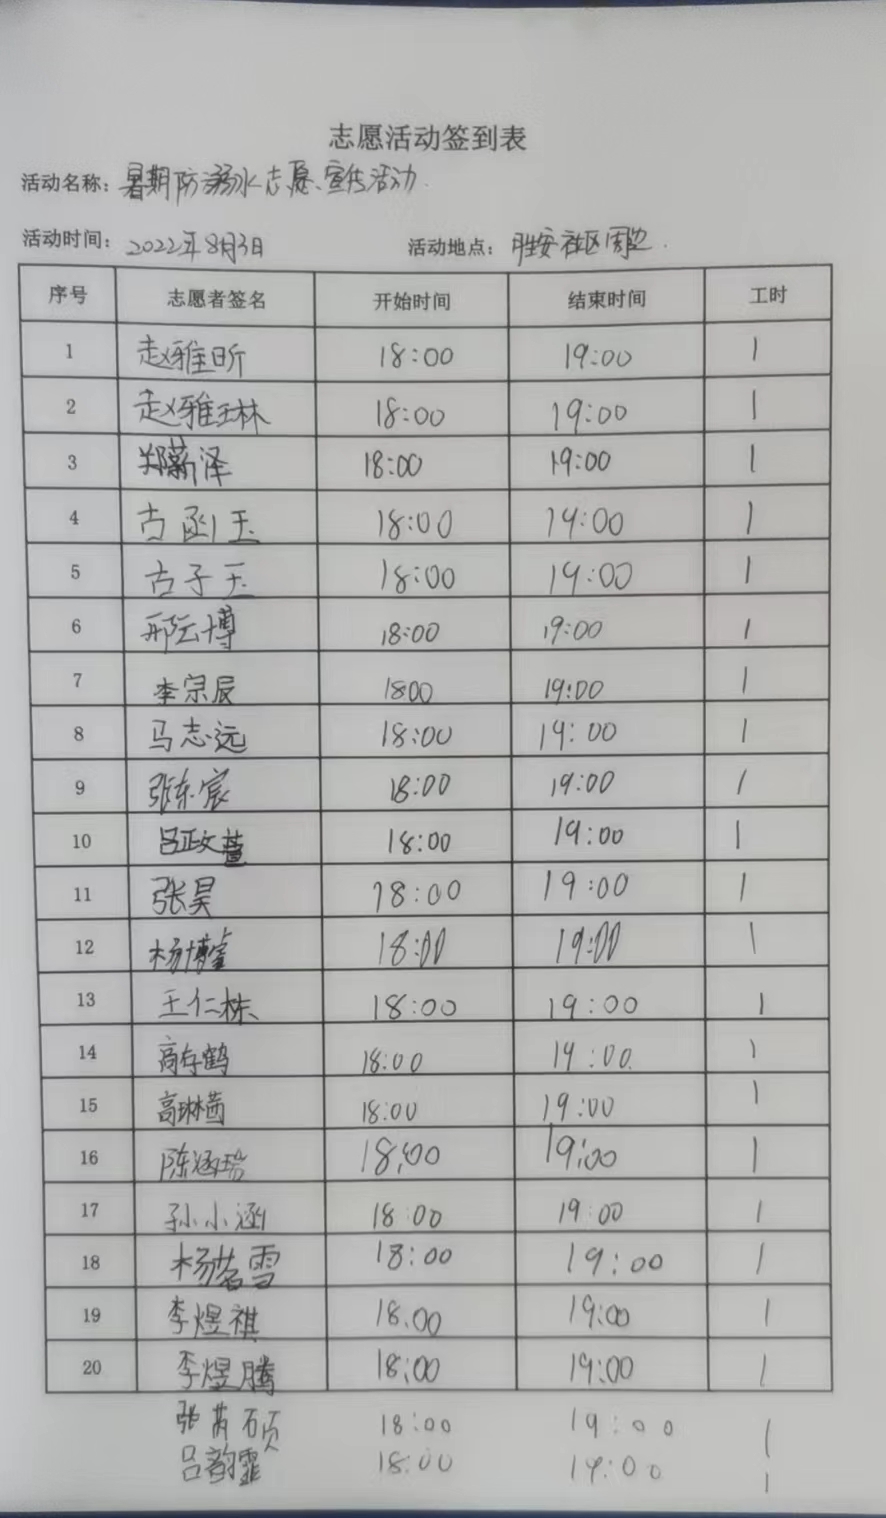 志愿活动签到表
活动名称：暑期防溺水志愿宣传活动.
活动时间：2022年8月3日 活动地点：胜安社区周边.
序号 志愿者签名 开始时间 结束时间 工时
1 赵雅昕 18:00 19:00 1
2 赵雅琳 18:00 19:00 1
3 郑薪泽 18:00 19:00 1
4 古函玉 18:00 19:00 1
5 古子玉 18:00 19:00 1
6 邢云博 18:00 19:00 1
7 李宗辰 1800 19:00 1
8 马志远 18:00 19:00 1
9 张东宸 18:00 19:00 1
10 吕政萱 18:00 19:00 1
11 张昊 18:00 19:00 1
12 杨博睿 18:00 19:00 1
13 王仁株 18:00 19:00 1
14 高存鹤 18:00 19:00 1
15 高琳茜 18:00 19:00 1
16 陈涵瑞 18:00 19:00 1
17 孙小涵 18:00 19:00 1
18 杨茗雪 18:00 19:00 1
19 李煜祺 18.00 19:00 1
20 李煜腾 18:00 19:00 1
张芮硕 18:00 19:00 1
吕韵霏 18:00 19:00 1